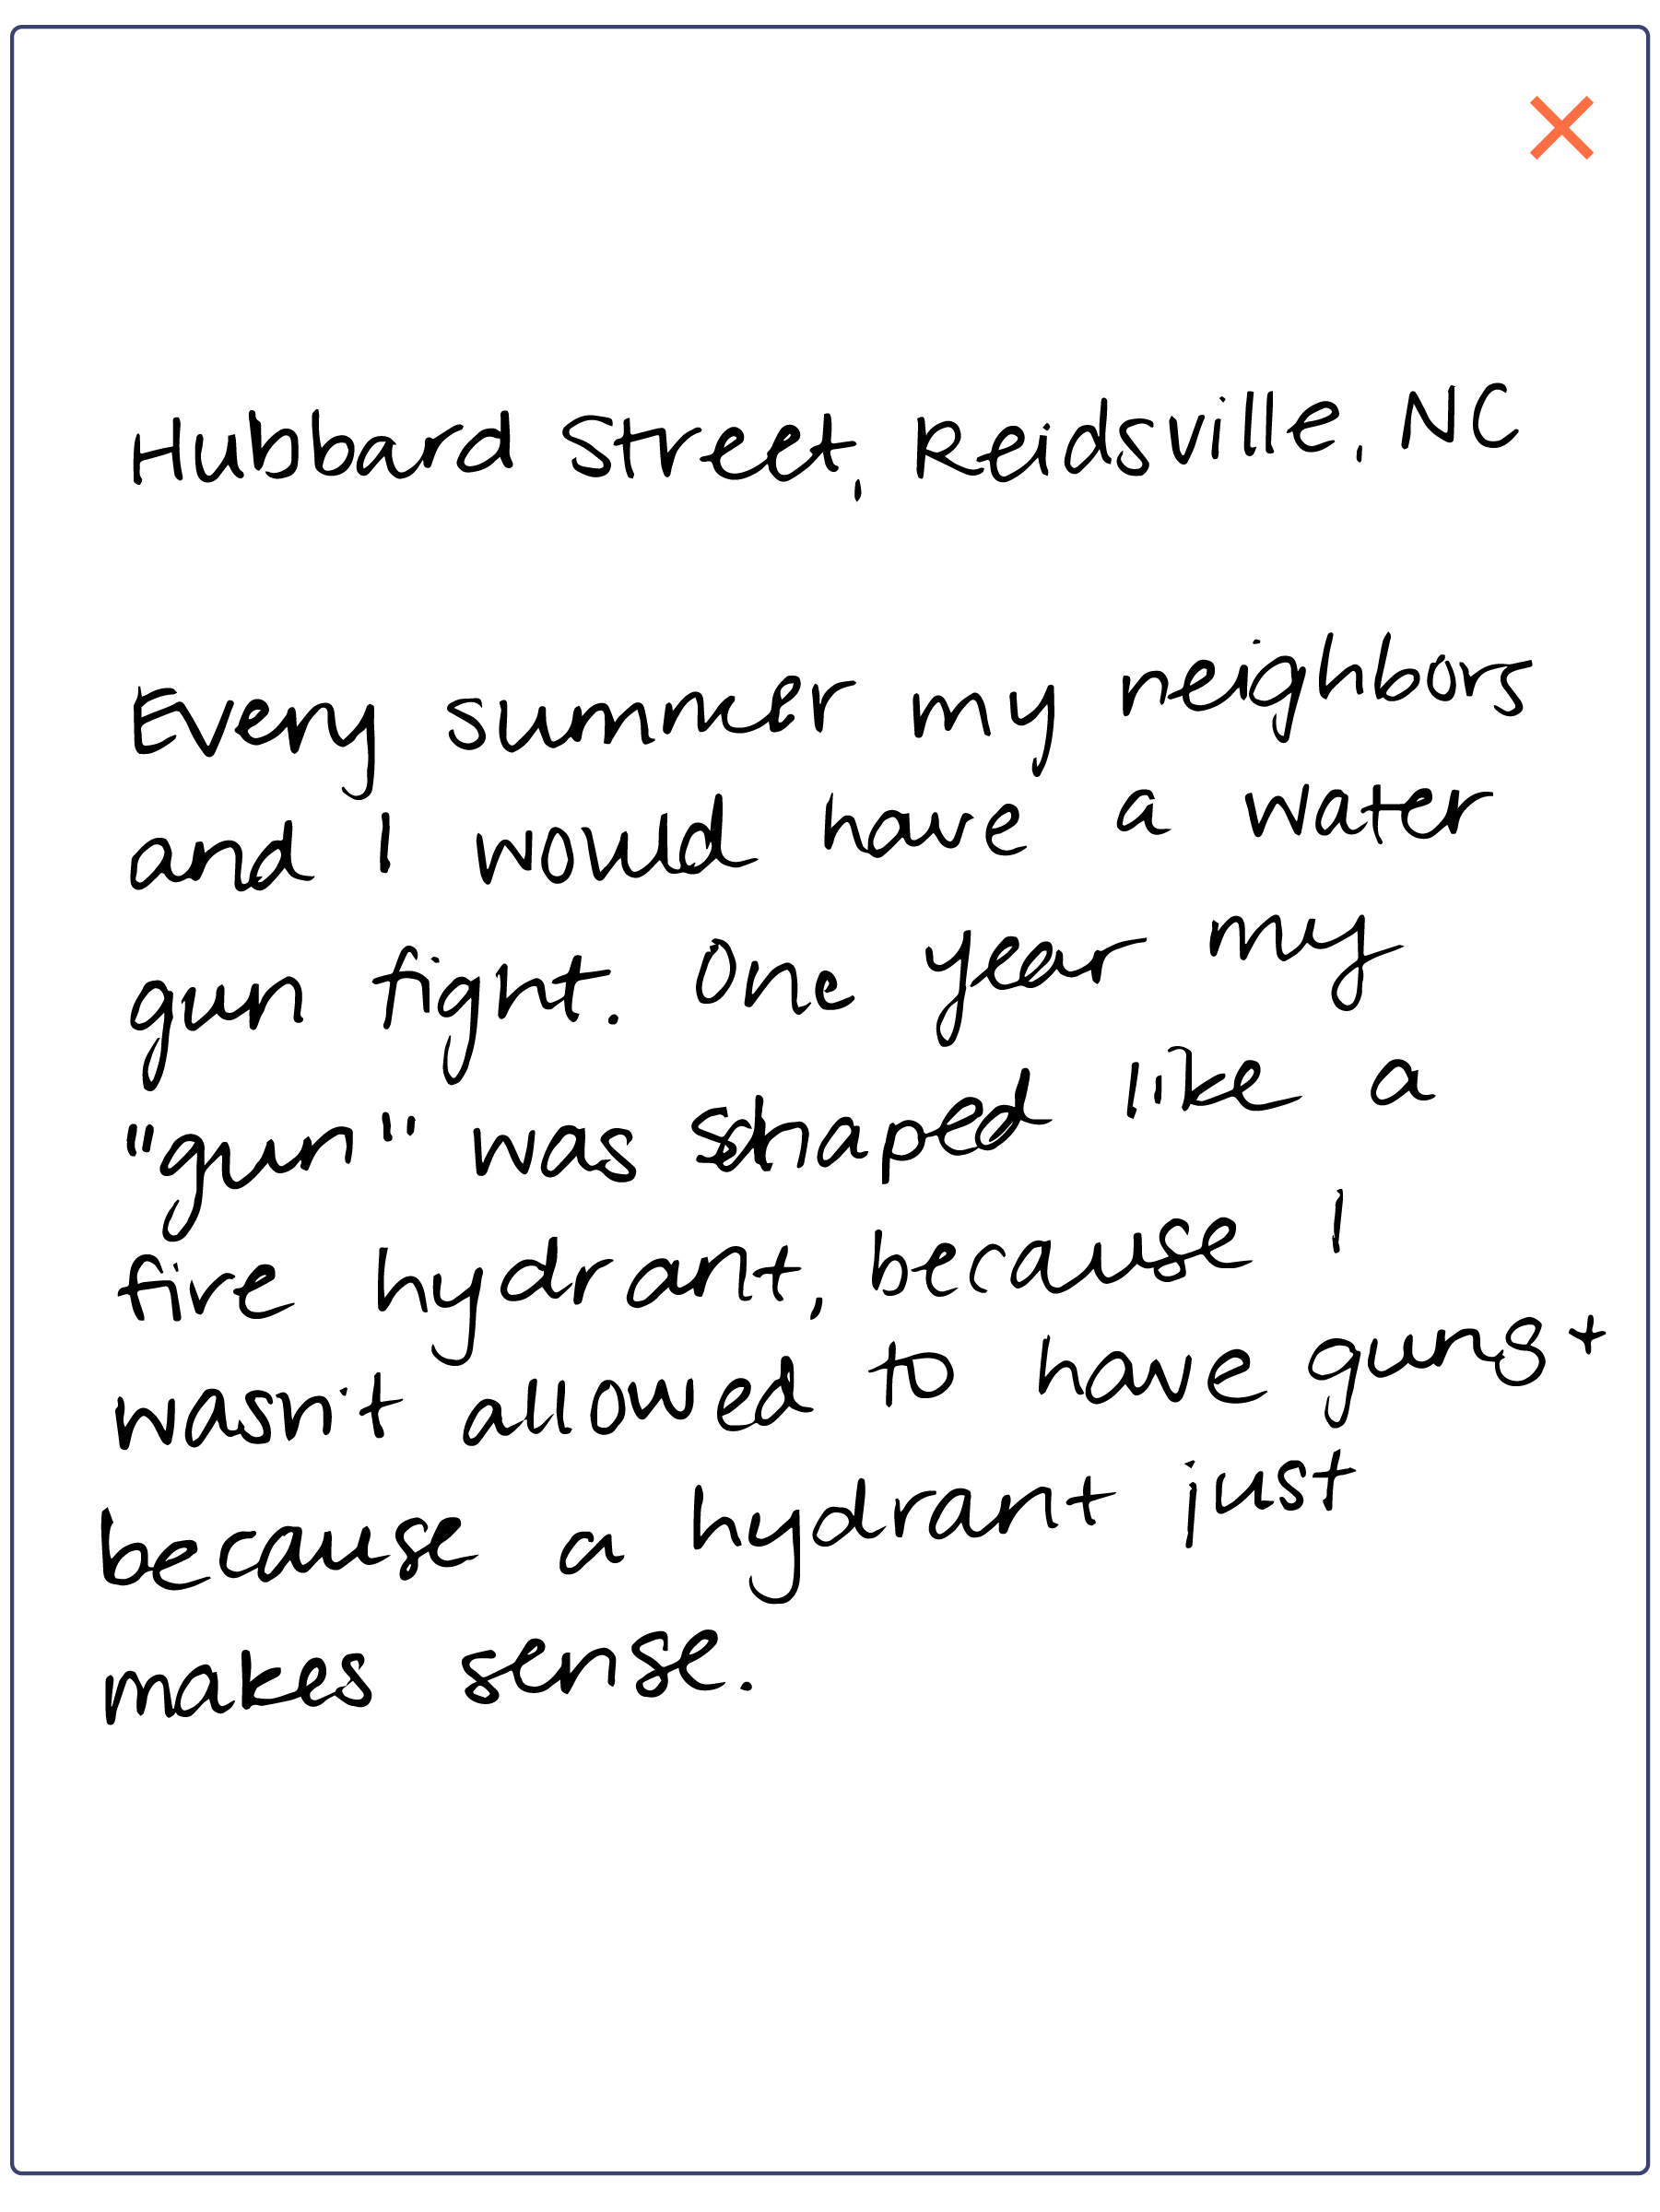 Hubbard Street, Reidsville, NC
Every summer my neighbors
and I would have a water
gun fight. One year my
"gun" was shaped like a
fire hydrant, because I
wasn't allowed to have guns +
because a hydrant just
makes sense.